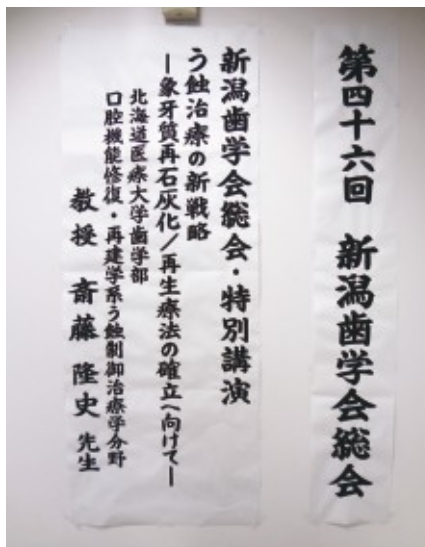 第四十六回 新潟歯学会総会
新潟歯学会総会・特別講演
う蝕治療の新戦略
―象牙質再石灰化／再生療法の確立へ向けて―
北海道医療大学歯学部
口腔機能修復・再建学系う蝕制御治療学分野
教授 斎藤 隆史 先生